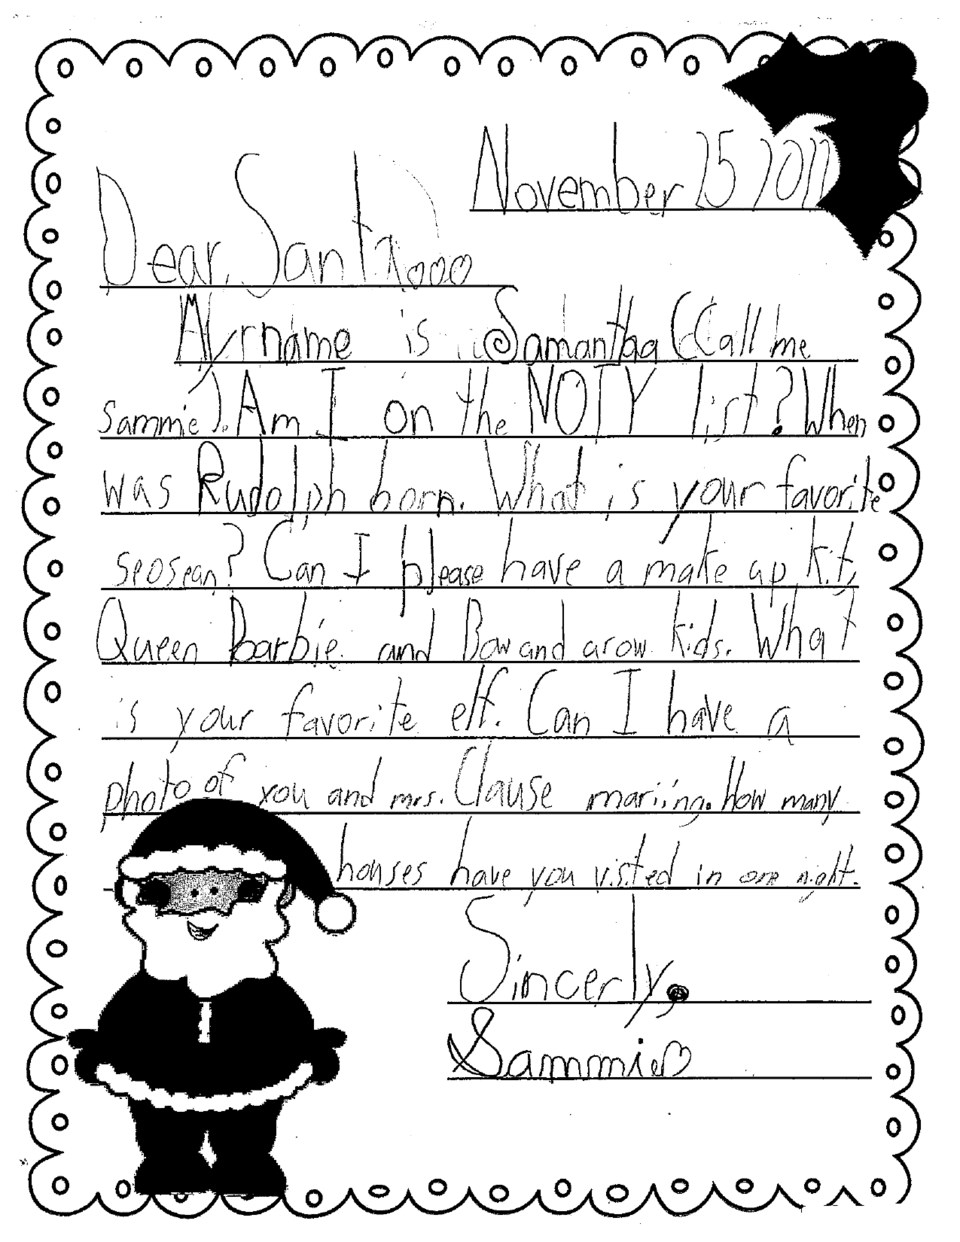 November 15
Dear, Santa
My name is Samantha (Call me
Sammie). Am I on the NOTY list? When
was Rudolph born. What is your favorite
seosean? Can I please have a make up kit,
Queen Barbie and Bow and arow kids. What
is your favorite elf. Can I have a
photo of you and mrs. Clause mariing. How many
houses have you visted in one night.
Sincerly,
Sammie